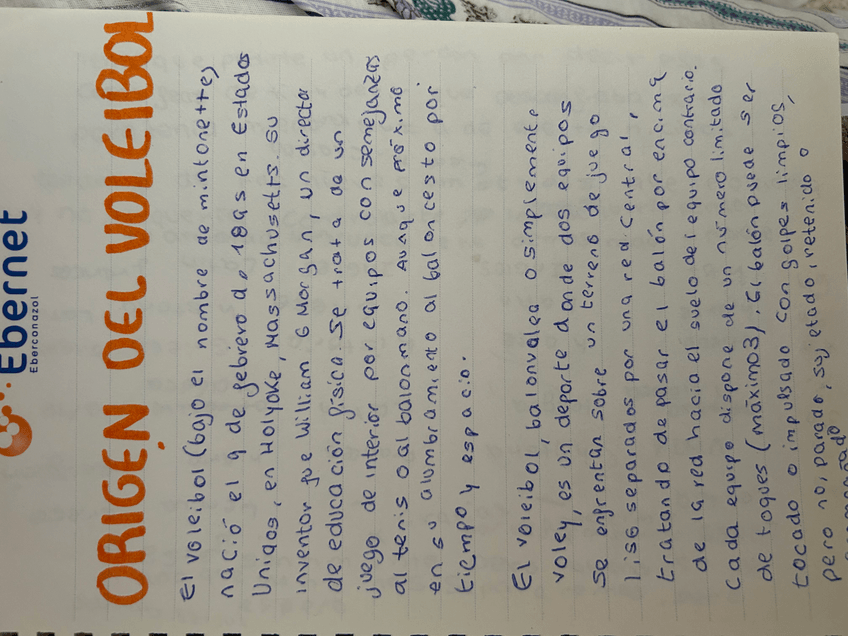 Ebernet
Eberconazol
ORIGEN DEL VOLEIBOL
El voleibol (bajo el nombre de mintonette)
nació el 9 de febrero de 1895 en Estados
Unidos, en Holyoke, Massachusetts. Su
inventor fue William G Morgan, un director
de educación física Se trata de un
juego de interior por equipos con semejanzas
al tenis o al balonmano. Aunque próximo
en su alumbramiento al baloncesto por
tiempo y espacio.
El voleibol, balonvolea o simplemente
voley, es un deporte donde dos equipos
se enfrentan sobre un terreno de juego
liso separados por una red central,
tratando de pasar el balón por encima
de la red hacia el suelo del equipo contrario.
Cada equipo dispone de un número limitado
de toques (máximo 3). El balón puede ser
tocado o impulsado con golpes limpios,
pero no, parado, sujetado, retenido o